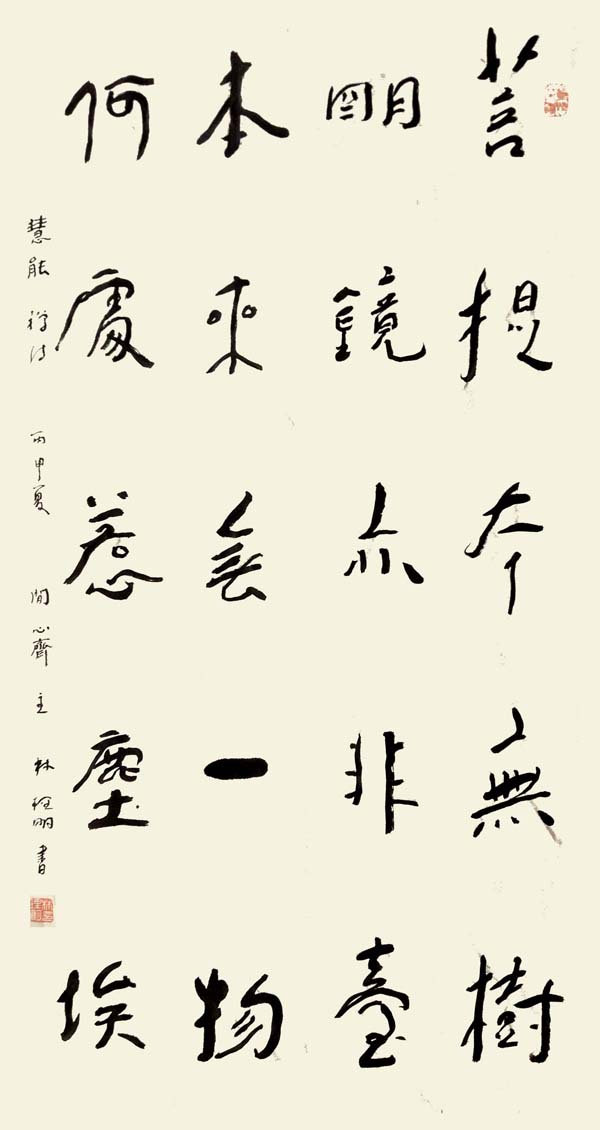 菩提本無樹
明鏡亦非臺
本來無一物
何處惹塵埃
慧能禅诗 丙申夏 閒心齊主 林明書